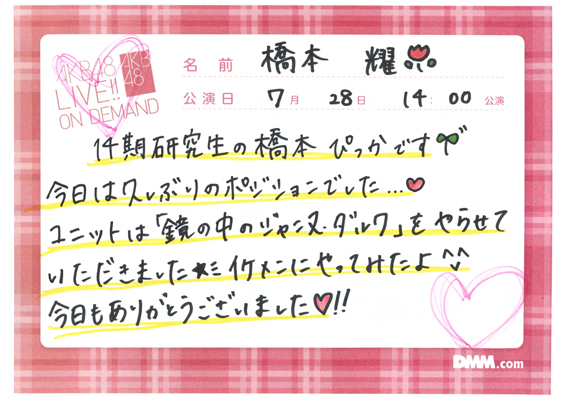 AKB48
LIVE!!
ON DEMAND
AKB
48
名前 橋本 耀
公演日 7月 28日 14:00 公演
14期研究生の橋本ぴっかです
今日は久しぶりのポジションでした…♥
ユニットは「鏡の中のジャンヌ・ダルク」をやらせて
いただきました★ミイケメンにやってみたよ^^
今日もありがとうございました♥!!
DMM.com